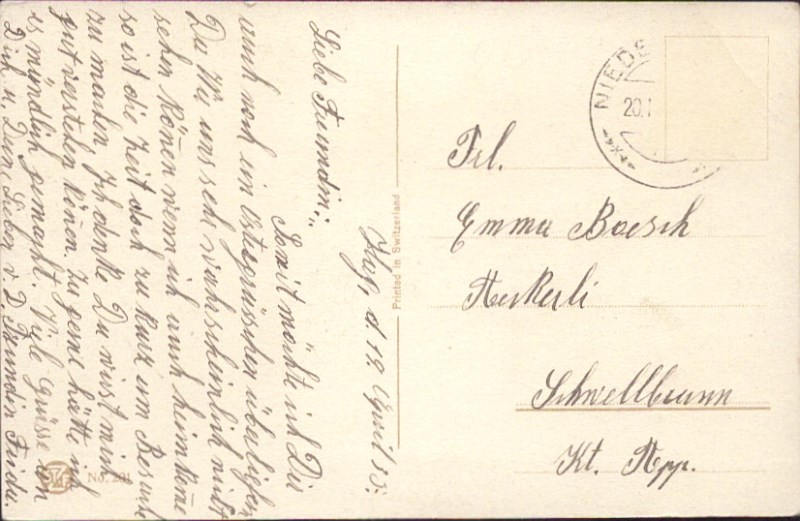 Zug, d. 19. April 33.
Liebe Freundin:,
Somit möchte ich Dir
auch noch ein Ostergrüsschen überliefern
Da Wir uns sehr wahrscheinlich nicht
sehen können wenn ich auch heim käme
so ist die Zeit doch zu kurz um Besuche
zu machen Ich denke Du wirst mich
gut verstehen können. Zu gerne hätte ich
es mündlich gemacht. Viele Grüsse an
Dich u. Deine Lieben v. D. Freundin Frieda.
No. 201
Printed in Switzerland
NIEDE
20.
Frl.
Emma Boesch
Schwellbrunn
Kt. App.